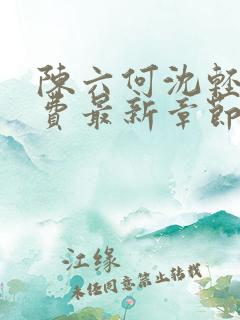 陳六何沈輕
費最新章節
江缘
未经同意禁止转载